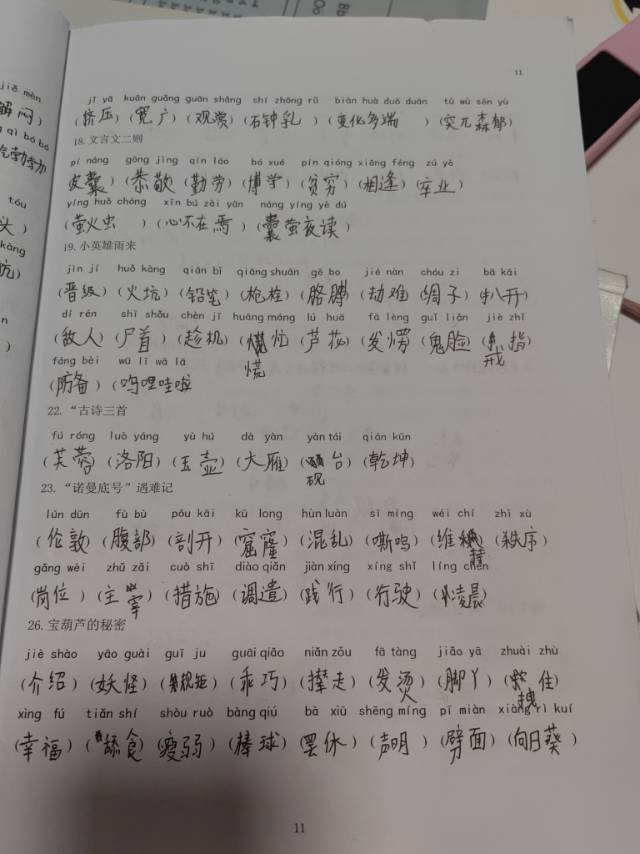 11
jǐ yā kuān guǎng guān shǎng shí zhōng rǔ biàn huà duō duān tū wù sēn yù
(挤压)(宽广)(观赏)(石钟乳)(变化多端)(突兀森郁)
18.文言文二则
pí náng gōng jìng qín láo bó xué pín qióng xiāng féng zú yè
(皮囊)(恭敬)(勤劳)(博学)(贫穷)(相逢)(卒业)
yíng huǒ chóng xīn bú zài yān náng yíng yè dú
(萤火虫)(心不在焉)(囊萤夜读)
19.小英雄雨来
jìn jí huǒ kàng qiān bǐ qiāng shuān gē bo jié nàn chóu zi bā kāi
(晋级)(火炕)(铅笔)(枪栓)(胳膊)(劫难)(绸子)(扒开)
dí rén shī shǒu chèn jī huāng máng lú huā fā lèng guǐ liǎn jiè zhǐ
(敌人)(尸首)(趁机)(慌忙)(芦花)(发愣)(鬼脸)(戒指)
fáng bèi wū lī wā lā
(防备)(呜哩哇啦)
22.“古诗三首
fú róng luò yáng yù hú dà yàn yàn tái qián kūn
(芙蓉)(洛阳)(玉壶)(大雁)(砚台)(乾坤)
23.“诺曼底号”遇难记
lún dūn fù bù pōu kāi kū long hùn luàn sī míng wéi chí zhì xù
(伦敦)(腹部)(剖开)(窟窿)(混乱)(嘶鸣)(维持)(秩序)
gǎng wèi zhǔ zǎi cuò shī diào qiǎn jiàn xíng xíng shǐ líng chén
(岗位)(主宰)(措施)(调遣)(践行)(行驶)(凌晨)
26.宝葫芦的秘密
jiè shào yāo guài guī ju guāi qiǎo niǎn zǒu fā tàng jiǎo yā zhuài zhù
(介绍)(妖怪)(规矩)(乖巧)(撵走)(发烫)(脚丫)(拽住)
xìng fú tiǎn shí shòu ruò bàng qiú bà xiū shēng míng pī miàn xiàng rì kuí
(幸福)(舔食)(瘦弱)(棒球)(罢休)(声明)(劈面)(向日葵)
11